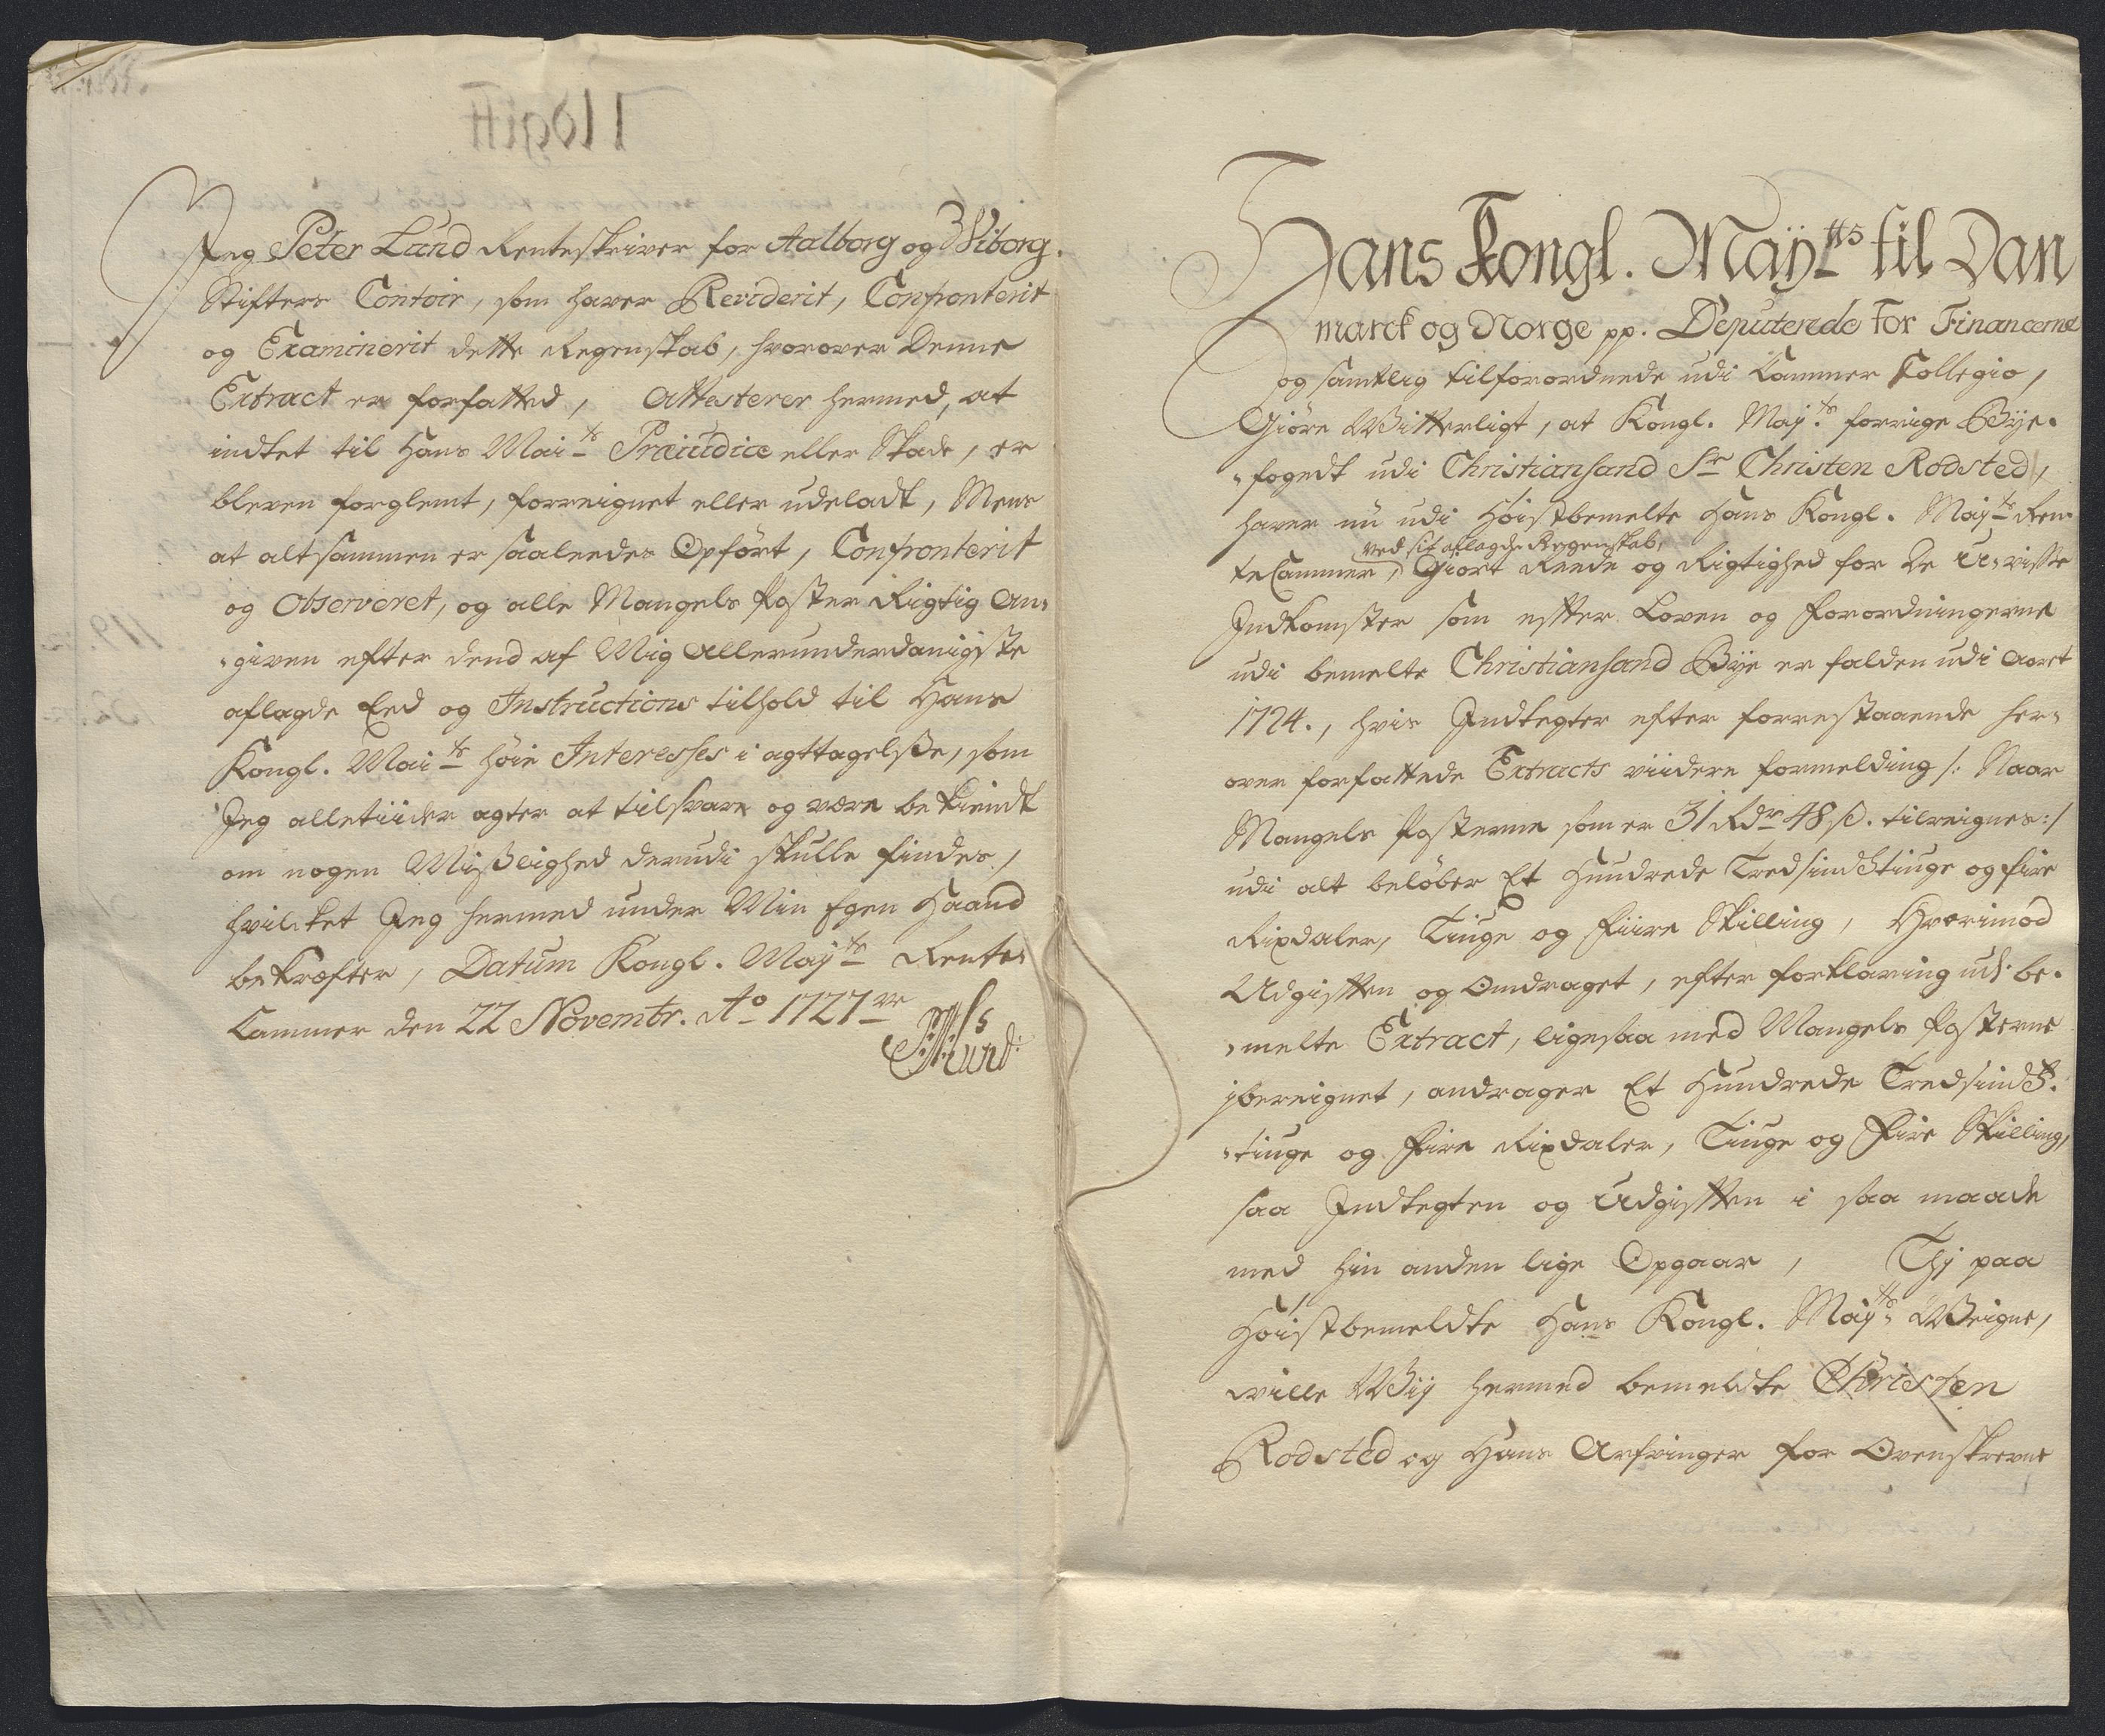 Jeg Peter Lund Renteskriver for Aalborg og Wiborg
Stifters Contoir, som haver Reviderit, Confronterit
og Examinerit dette Regenskab, hvorover Denne
Extract er forfatted, Attesterer hermed, at
indtet til Hans Mai.ts Præiudice eller Skade, er
bleven forglemt, forreignet eller udeladt, Mens
at altsammen er saaleedes Opfört, Confronterit
og Observeret, og alle Mangels Poster Rigtig An,
,given efter dend af Mig Allerunderdanigste
aflagde Eed og Instructions tilhold til Hans
Kongl. Mai.ts höie Interesses i agttagelsße, som
Jeg alletiider agter at tilsvare og være bekiendt
om nogen Mißlighed derudi skulle findes,
hvilcket Jeg hermed under Min Egen Haand
bekræfter, Datum Kongl. May.ts Rente,
Cammer den 22 Novembr. Ao 1727
PLund
Hans Kongl. Maÿ.tts til Dan
marck og Norge pp. Deputerede for Financerne
og samtlig tilforordnede udi Cammer Collegio,
Giöre Witterligt, at Kongl. May.ts forrige Bÿe,
,fogedt udi Christiansand Sr Christen Rodsted,
haver nu udi Höistbemelte Hans Kongl. May.ts Ren
ved sit aflagde Regenskab,
teCammer, Giort Reede og Rigtighed for De U,visse
Indkomster som efter Loven og Forordningerne
udi bemelte Christiansand Bÿe er falden udi Aaret
1724., hvis Indtegter efter forrestaaende her,
over forfattede Extracts viidere formelding /: Naar
Mangels Posterne som er 31 Rdr 48 ß. tilreignes :/
udi alt belöber Et Hundrede Tredsindstiuge og fire
Rixdaler, Tiuge og Fiire Skilling, Hvorimod
Udgiften og Omdraget, efter forklaring udi be,
,melte Extract, ligesaa med Mangels Posterne
ibereignet, andrager Et Hundrede Tredsinds,
,tiuge og Fire Rixdaler, Tiuge og Fire Skilling,
saa Indtegten og Udgiften i saa maade
med hin anden lige Opgaar, Thj paa
Höistbemeldte Hans Kongl. Maÿ.ts Weigne,
ville Wij hermed bemeldte Christen
Rodsted og Hans Arfvinger for Ovenskrevne